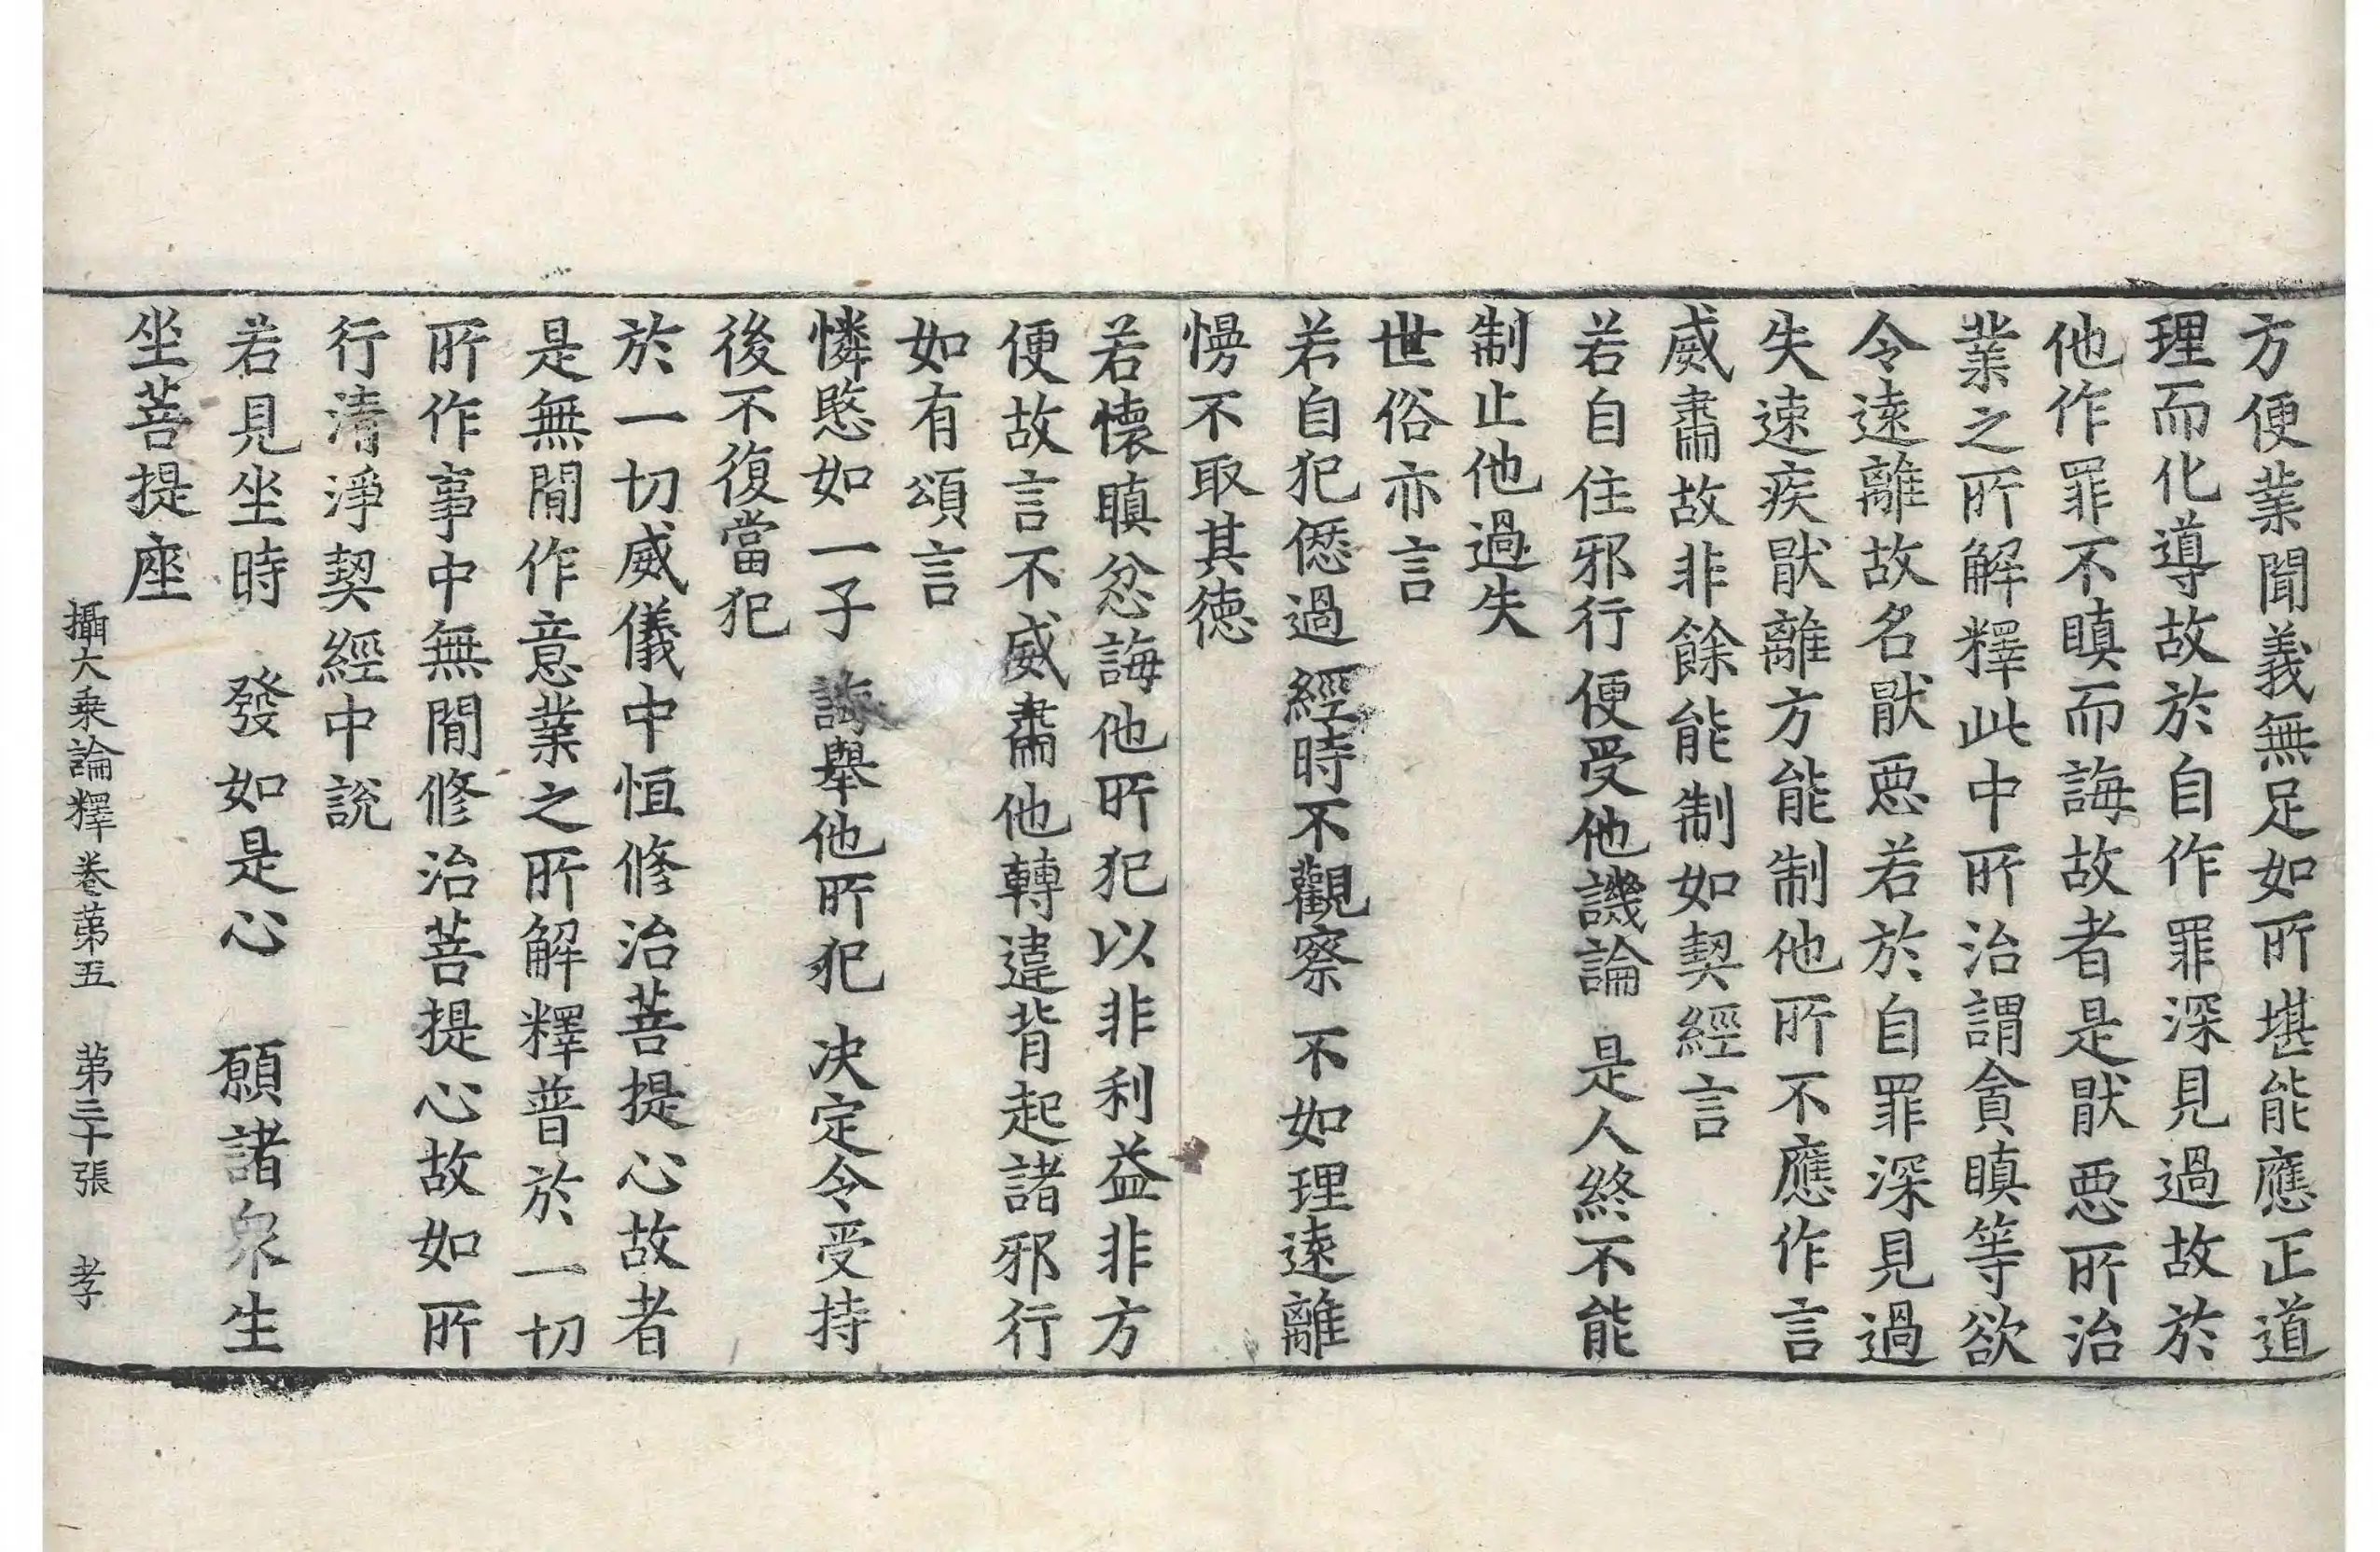 方便業聞義無足如所堪能應正道
理而化導故於自作罪深見過故於
他作罪不瞋而誨故者是猒惡所治
業之所解釋此中所治謂貪瞋等欲
令遠離故名猒惡若於自罪深見過
失速疾猒離方能制他所不應作言
威肅故非餘能制如契經言
若自住邪行 便受他譏論 是人終不能
制止他過失
世俗亦言
若自犯僽過 經時不觀察 不如理遠離
慢不取其德
若懷瞋忿誨他所犯以非利益非方
便故言不威肅他轉違背起諸邪行
如有頌言
憐愍如一子 誨舉他所犯 决定令受持
後不復當犯
於一切威儀中恒修治菩提心故者
是無間作意業之所解釋普於一切
所作事中無間修治菩提心故如所
行清淨契經中說
若見坐時 發如是心 願諸衆生
坐菩提座
攝大乗論釋卷第五 第三十張 孝